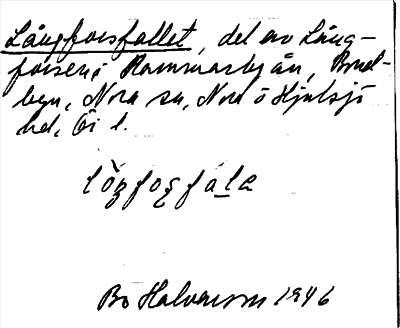 Långforsfallet, del av Lång-
forsen i Hammarby ån, Bred-
byn, Nora sn, Nora o Hjulsjö
hd, Ö l.
Bo Halvarsson 1946